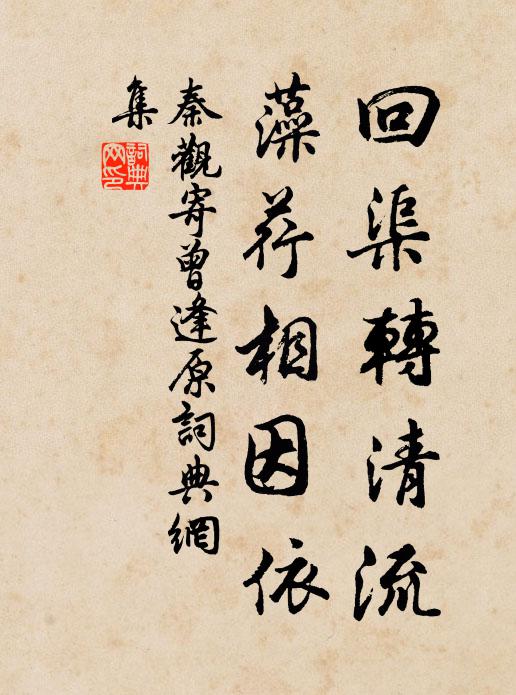 回渠轉清流
藻荇相因依
秦觀寄曾逢原詞典網
集
詞典網印